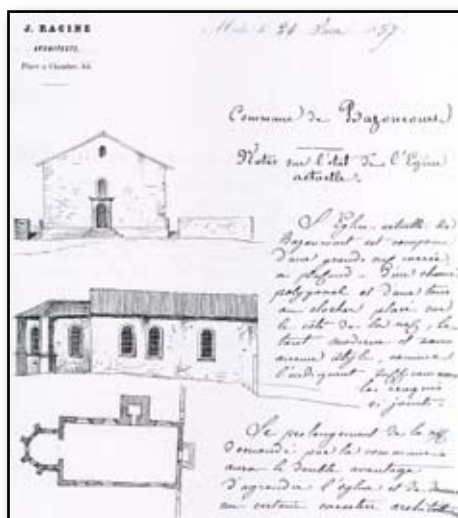 J. RACINE
ARCHITECTE,
Place de Chambre, 35.
Metz le 24 Juin 1857
Commune de Bazoncourt
Notes sur l'état de l'Eglise
actuelle.
L'Eglise actuelle de
Bazoncourt est composée
d'une grande nef carrée
au plafond d'un chœur
polygonal et d'une tour
au clocher placé sur
le côté de la nef, le
tout moderne et sans
aucun style, comme
l'indiquent suffisamment
les croquis
ci joints.
Le prolongement de la nef
demandé par la commune
aura le double avantage
d'agrandir l'église et de donner
un certain caractère